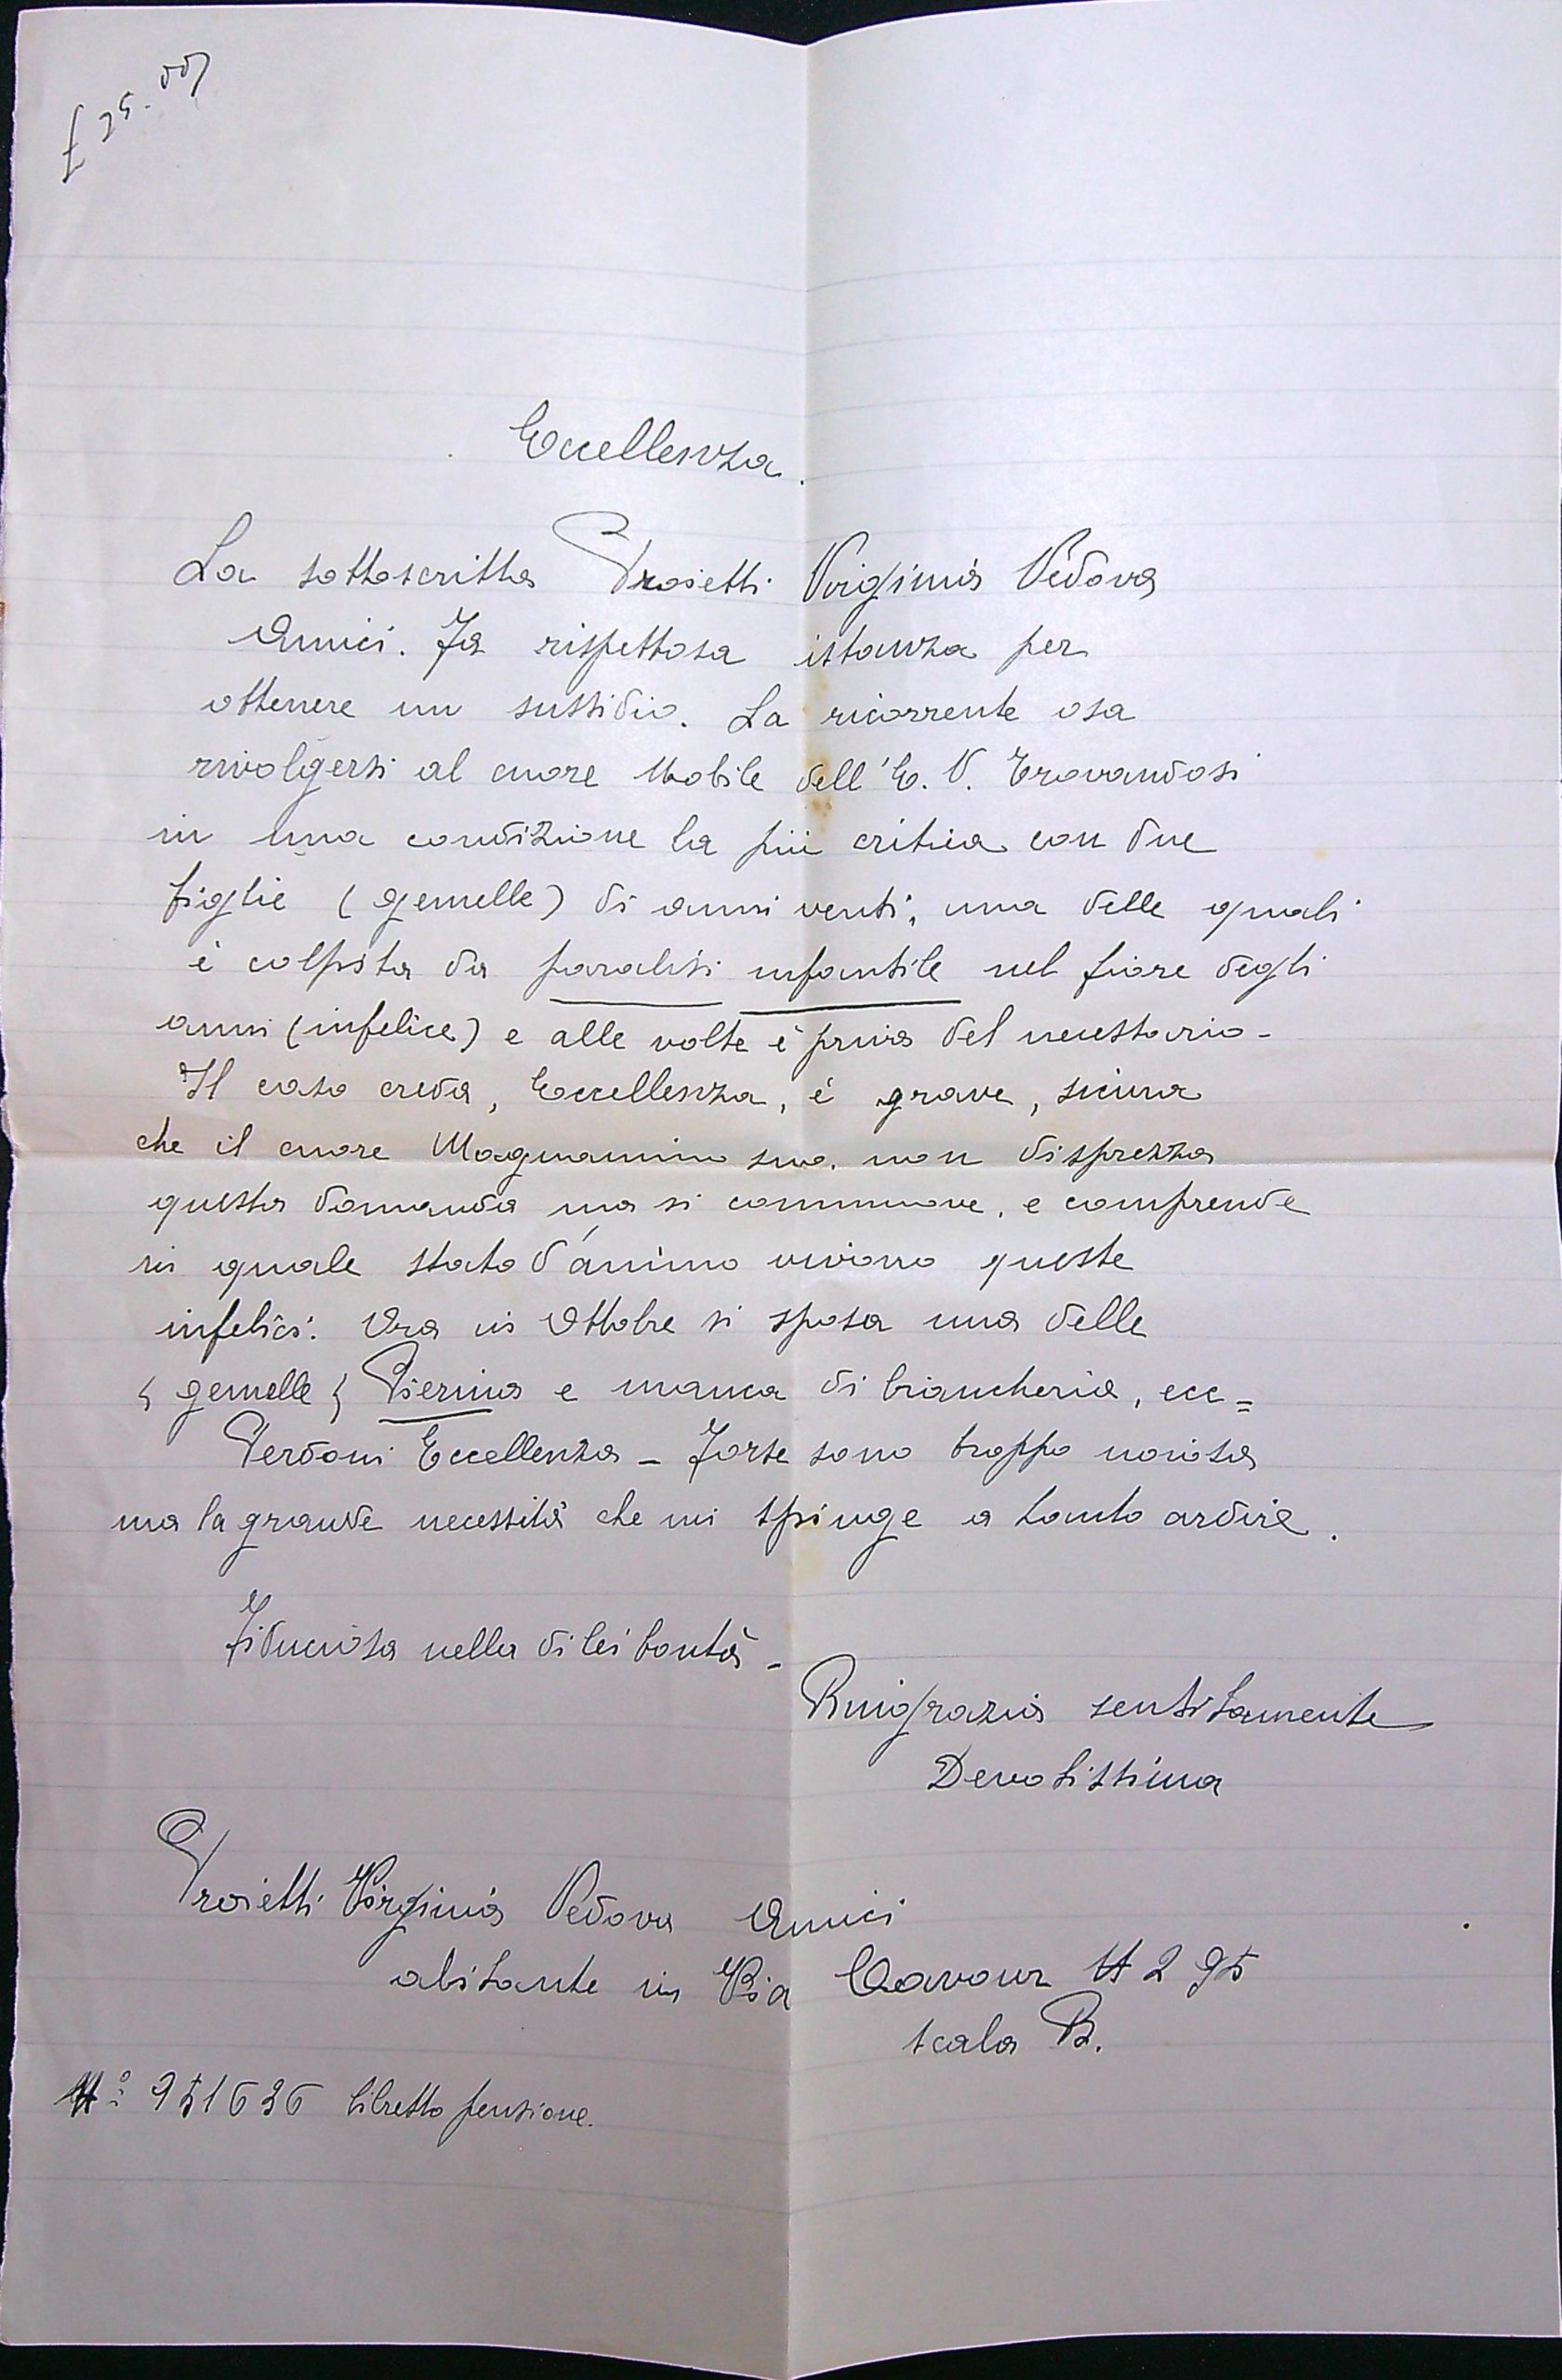 £ 25.00
Eccellenza.
La sottoscritta Proietti Virginia Vedova
Amici. Fa rispettosa istanza per
ottenere un sussidio. La ricorrente osa
rivolgersi al cuore Nobile dell'E. V. Trovandosi
in una condizione la più critica con due
figlie (gemelle) di anni venti, una delle quali
è colpita da paralisi infantile nel fiore degli
anni (infelice) e alle volte è priva del necessario -
Il caso creda, Eccellenza, è grave, sicura
che il cuore Magnanimo suo. non disprezza
questa domanda ma si commuove, e comprende
in quale stato d'animo vivono queste
infelici. Ora in Ottobre si sposa una delle
{ gemelle } Pierina e manca di biancheria, ecc =
Perdoni Eccellenza - Forse sono troppo noiosa
ma la grande necessità che mi spinge a tanto ardire.
Fiduciosa nella di lei bontà -
Ringrazia sentitamente
Devotissima
Proietti Virginia Vedova Amici
abitante in Via Cavour N 295
scala B.
N° 951636 libretto pensione.